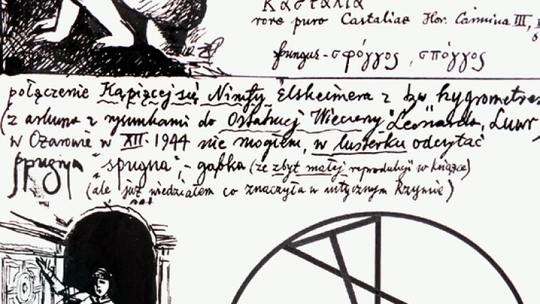 Κασταλια
rore puro Castaliae Hor. Carmina III,
fungus - σφόγγος, σπόγγος
połączenie Kąpiącej się Nimfy Elsheimera z tzw hygrometrem
(z arkusza z rysunkami do Ostatniej Wieczerzy Leonarda, Luwr
w Ożarowie w XII 1944 nie mogłem, w lusterku odczytać
spugna "spugna" - gąbka (ze zbyt małej reprodukcji w książce)
(ale już wiedziałem co znaczyła w antycznym Rzymie)